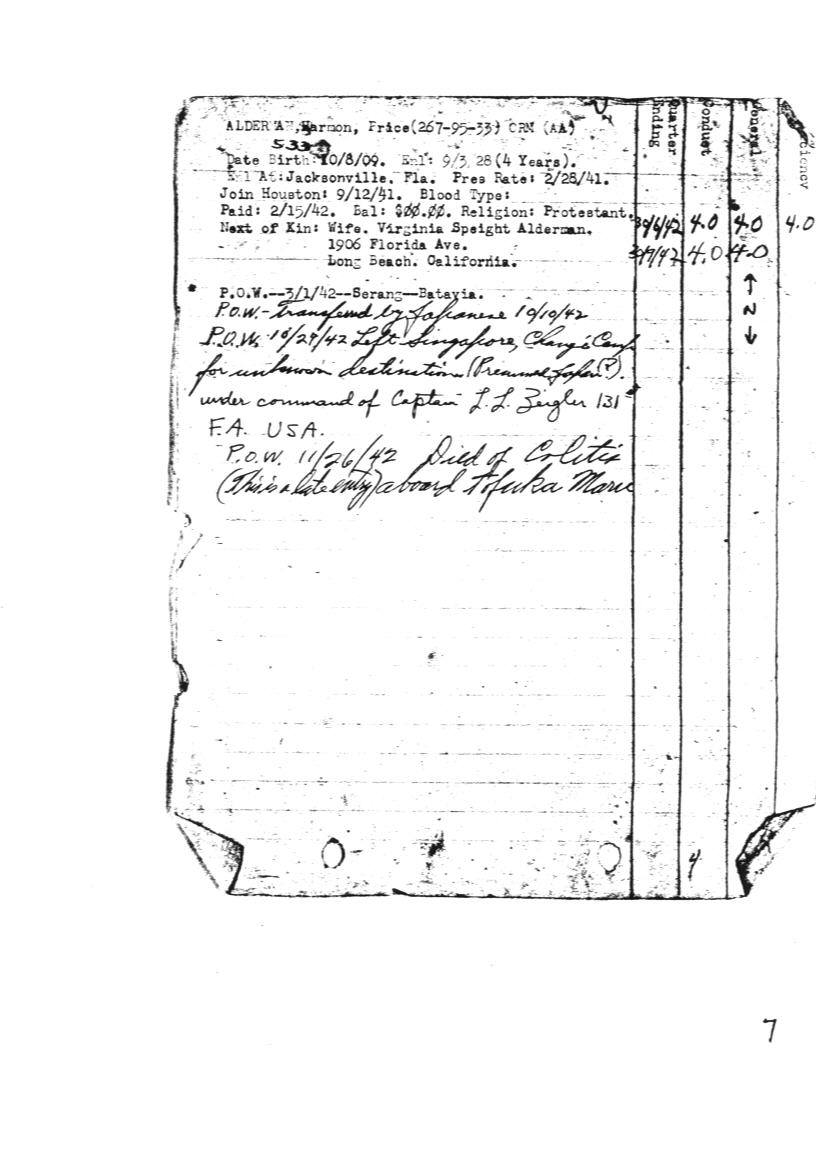 ALDERMAN, Harmon, Price (267-95-33) CRM (AA)
533
Date Birth: 10/8/09. Enl: 9/3/28 (4 Years).
Enl At: Jacksonville. Fla. Pres Rate: 2/28/41.
Join Houston: 9/12/41. Blood Type:
Paid: 2/15/42. Bal: $00.00. Religion: Protestant.
Next of Kin: Wife. Virginia Speight Alderman.
1906 Florida Ave.
Long Beach. California.
P.O.W.--3/1/42--Serang--Batavia.
P.O.W.- Transferred by Japanese 10/10/42
P.O.W. 10/29/42 Left Singapore, Changi Camp
for unknown destination (Presumed Japan?).
under command of Captain L.L. Zeigler 131
F.A. USA.
P.O.W. 11/26/42 Died of Colitis
(This is a late entry) aboard Tofuka Maru
Quarter Ending
Conduct
General
4.0 4.0 4.0
4.0 4.0
↑
N
↓
4
7